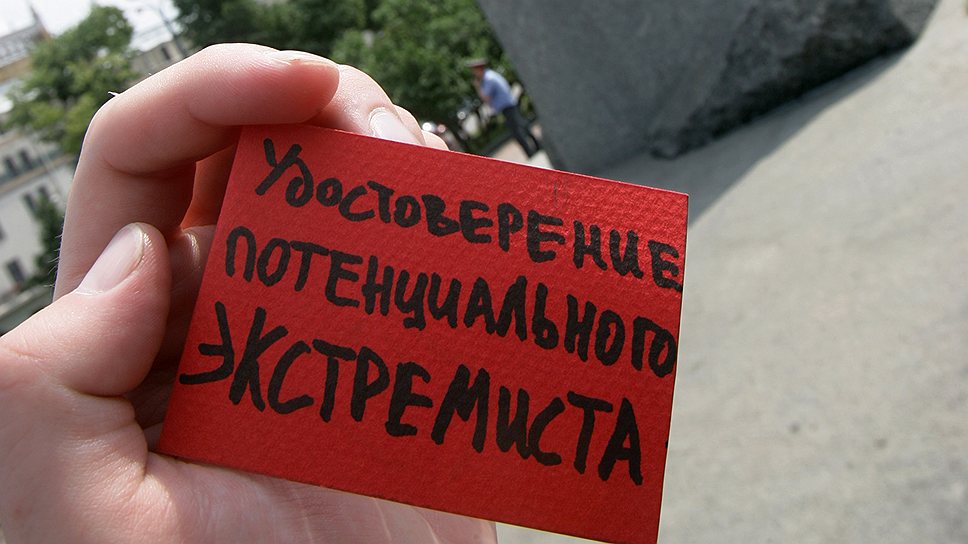 Удостоверение
потенциального
экстремиста